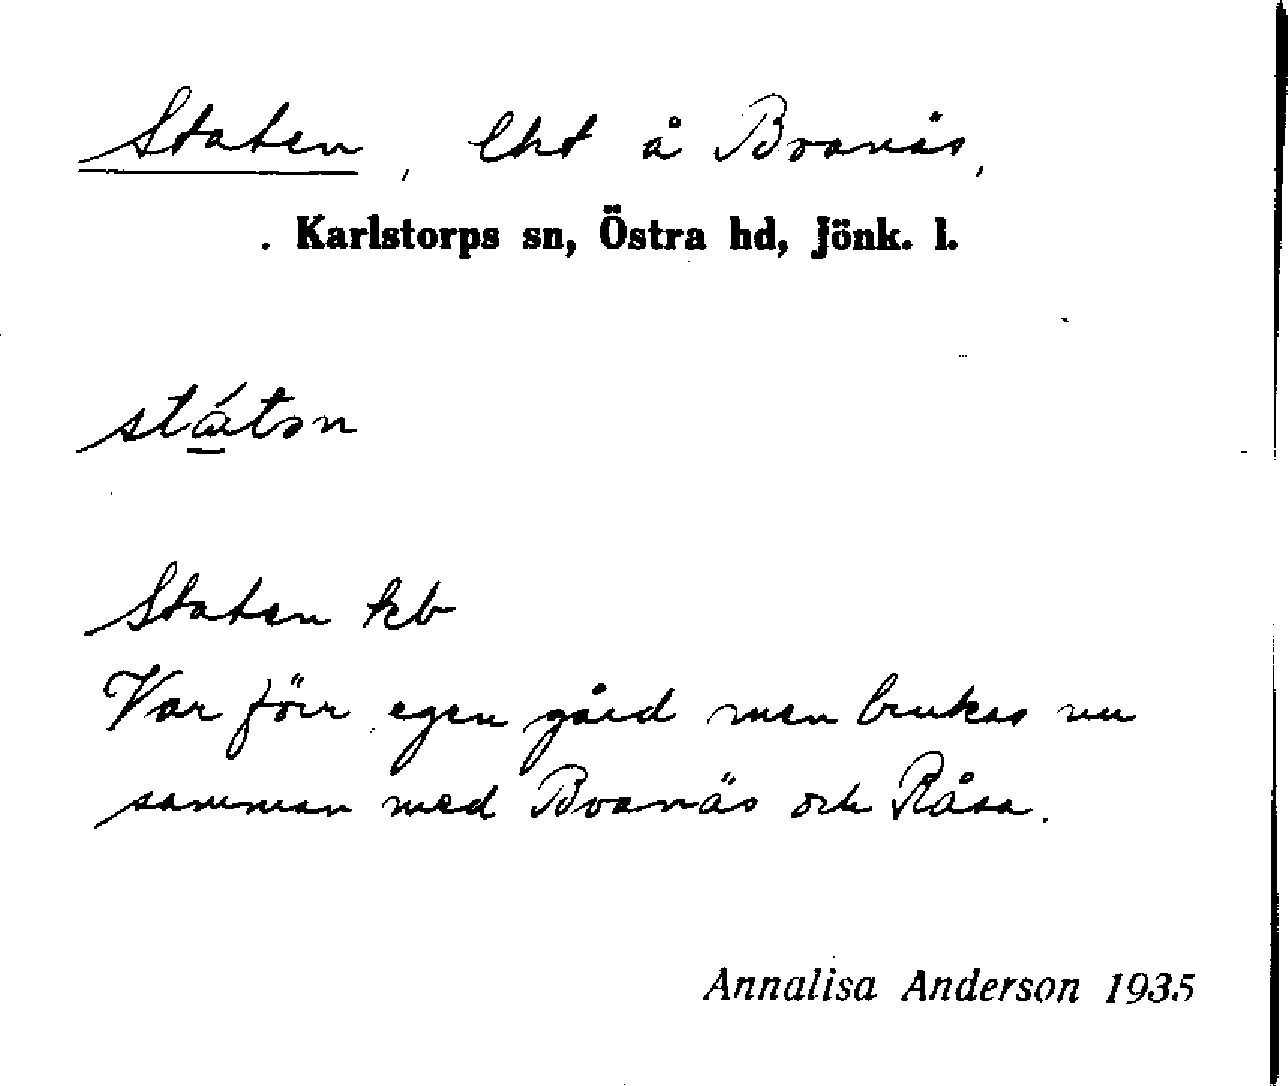 Staten, lht å Boanäs,
. Karlstorps sn, Östra hd, Jönk. l.
státən
Staten kb
Var förr egen gård men brukas nu
samman med Boanäs och Råsa.
Annalisa Anderson 1935